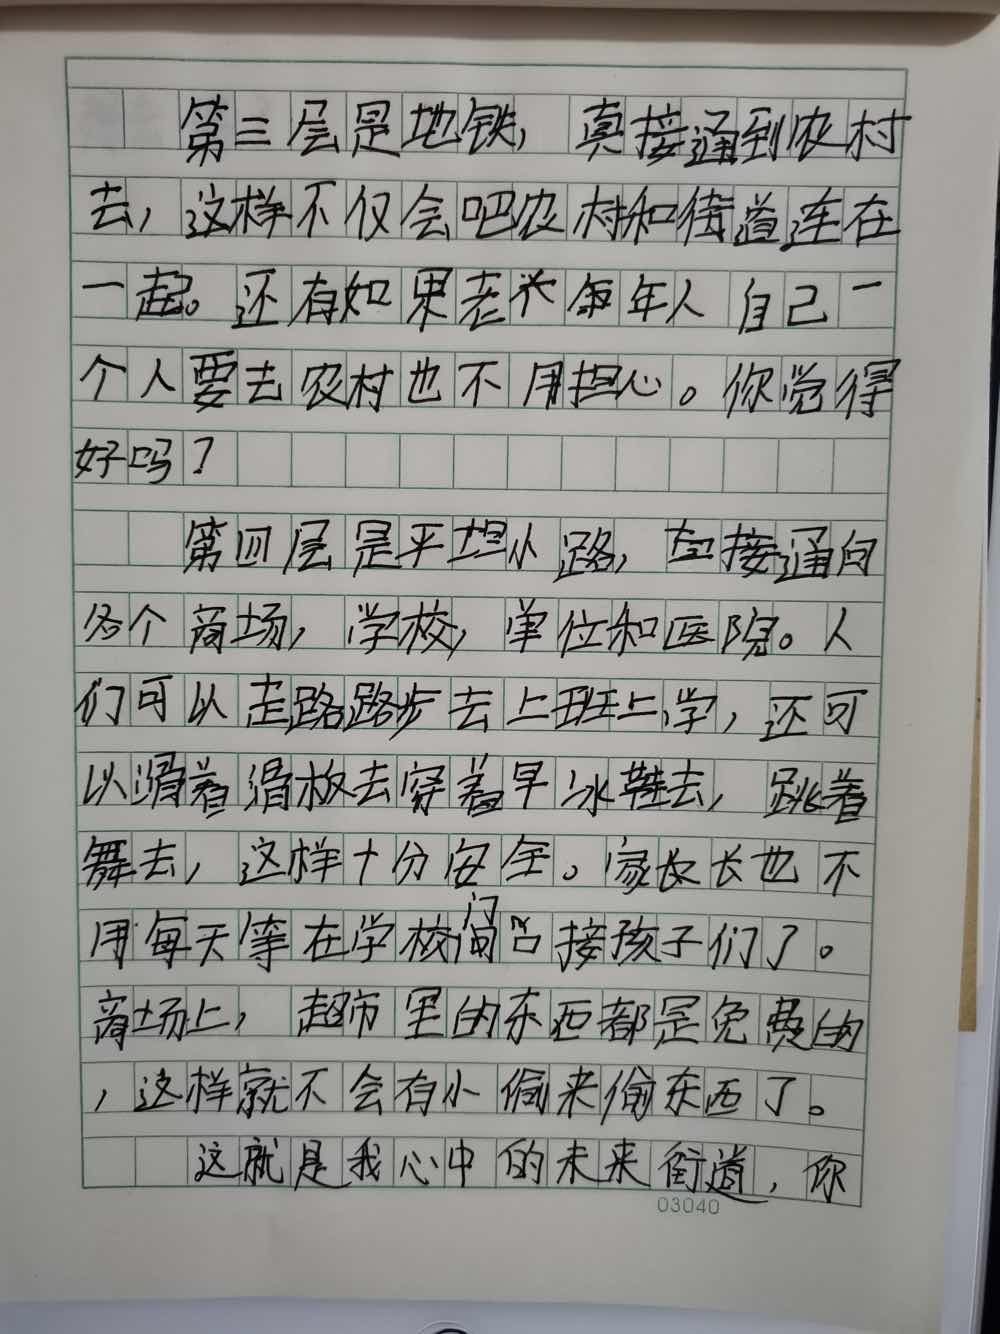 第三层是地铁，真接通到农村
去，这样不仅会吧农村和街道连在
一起。还有如果老年人自己一
个人要去农村也不用担心。你觉得
好吗？
第四层是平坦小路，直接通向
各个商场，学校，单位和医院。人
们可以走路路步去上班上学，还可
以滑着滑板去穿着旱冰鞋去，跳着
舞去，这样十分安全。家长长也不
用每天等在学校门口接孩子们了。
商场上，超市里的东西都是免费的
，这样就不会有小偷来偷东西了。
这就是我心中的未来街道，你
03040